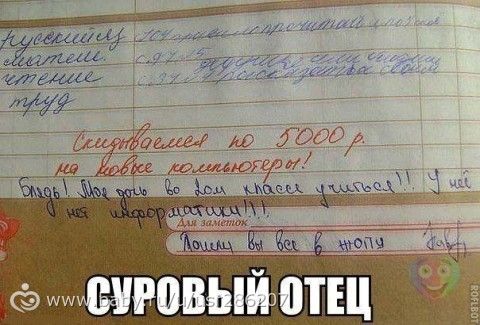 русский яз
матем с.97
чтение
труд
Скидываемся по 5000 р.
на новые компьютеры!
Блядь! Моя дочь во 2ом классе учиться!! У неё
нет информатики!!!!
Для заметок
Пошли вы все в жопу
СУРОВЫЙ ОТЕЦ
www.baby.ru/u/usr286207
ROFLBOT